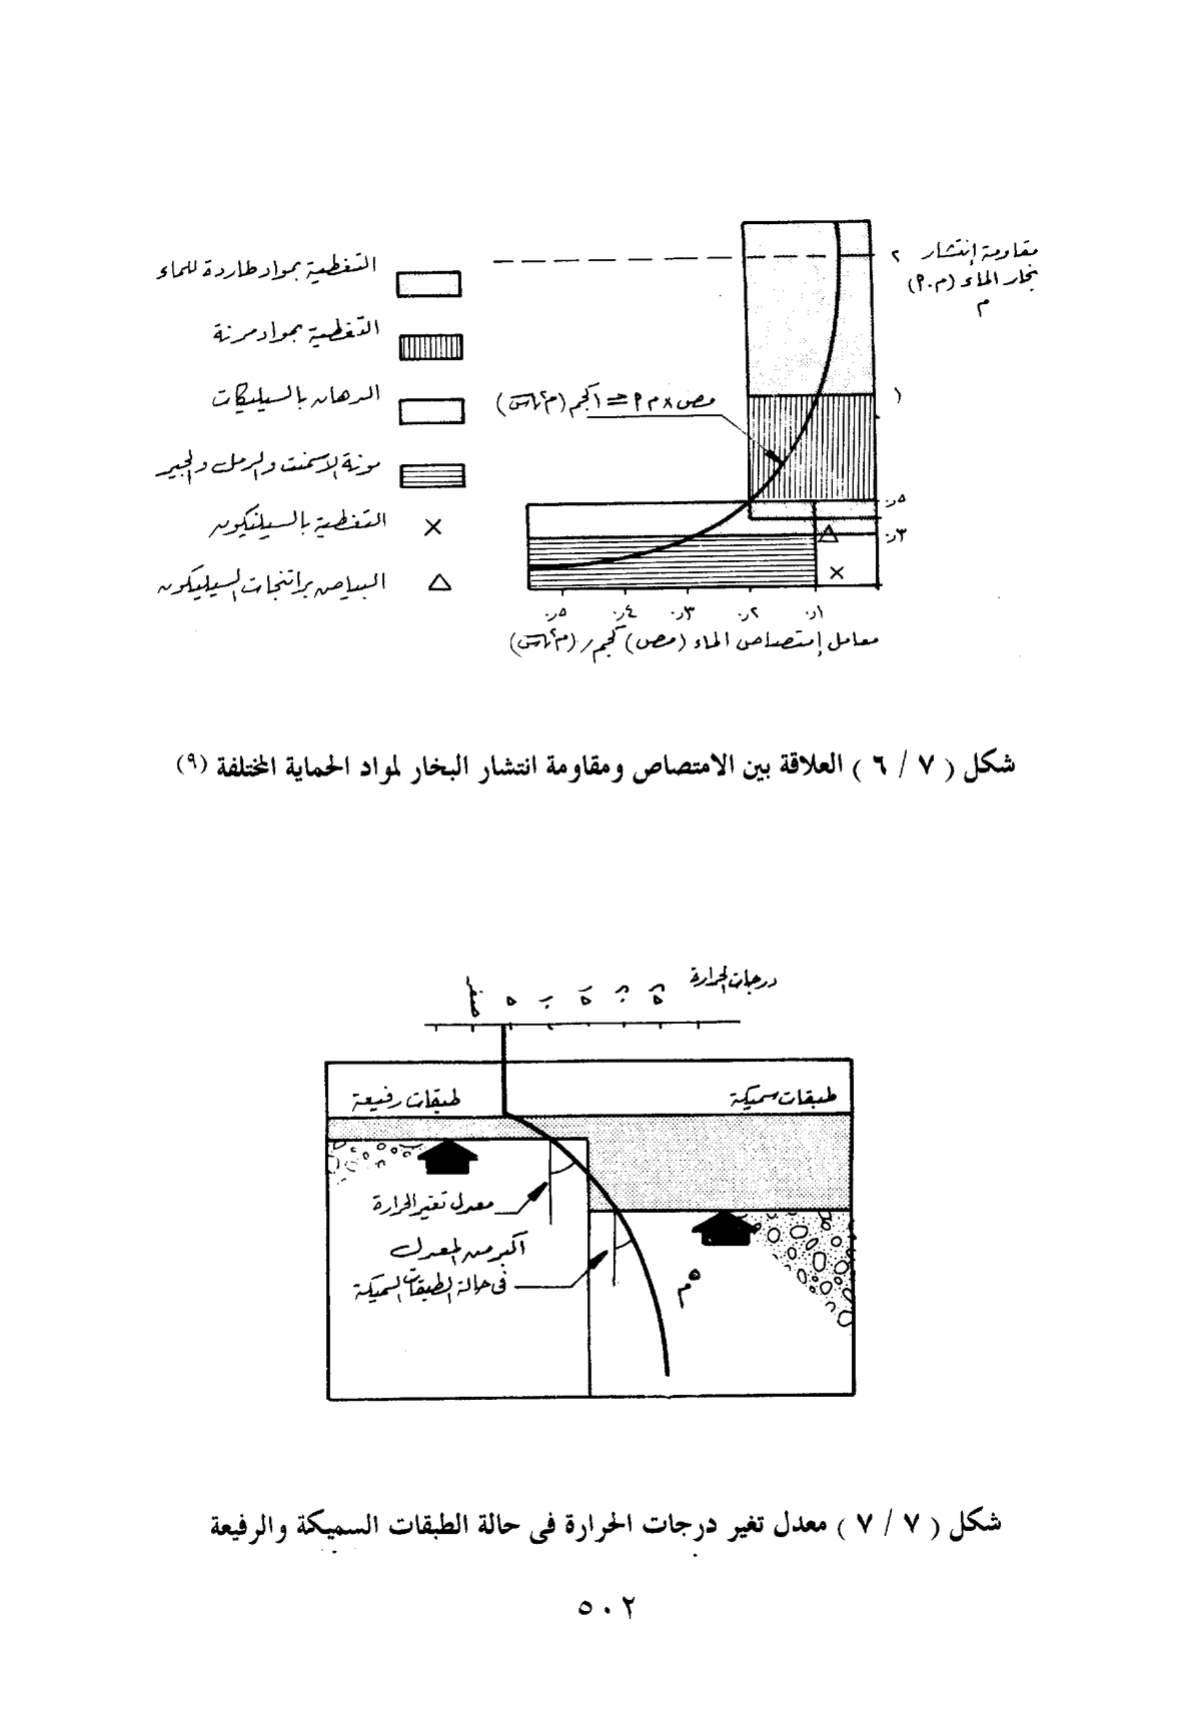 مقاومة إنتشار
بخار الماء (م.م)
م
٢
١
٥ر.
٣ر.
التغطية بمواد طاردة للماء
التغطية بمواد مرنة
الدهان بالسيليكات
مونة الاسمنت والرمل والجير
التغطية بالسيليكون
البياض براتنجات السيليكون
١ر. ٢ر. ٣ر. ٤ر. ٥ر.
معامل إمتصاص الماء (مص) كجم / (م٢
شكل ( ٧ / ٦ ) العلاقة بين الامتصاص ومقاومة انتشار البخار لمواد الحماية المختلفة (٩)
درجات الحرارة
صفر
طبقات سميكة
طبقات رفيعة
معدل تغير الحرارة
أكبر من المعدل
فى حالة الطبقات السميكة
٥م
شكل ( ٧ / ٧ ) معدل تغير درجات الحرارة فى حالة الطبقات السميكة والرفيعة
٥٠٢